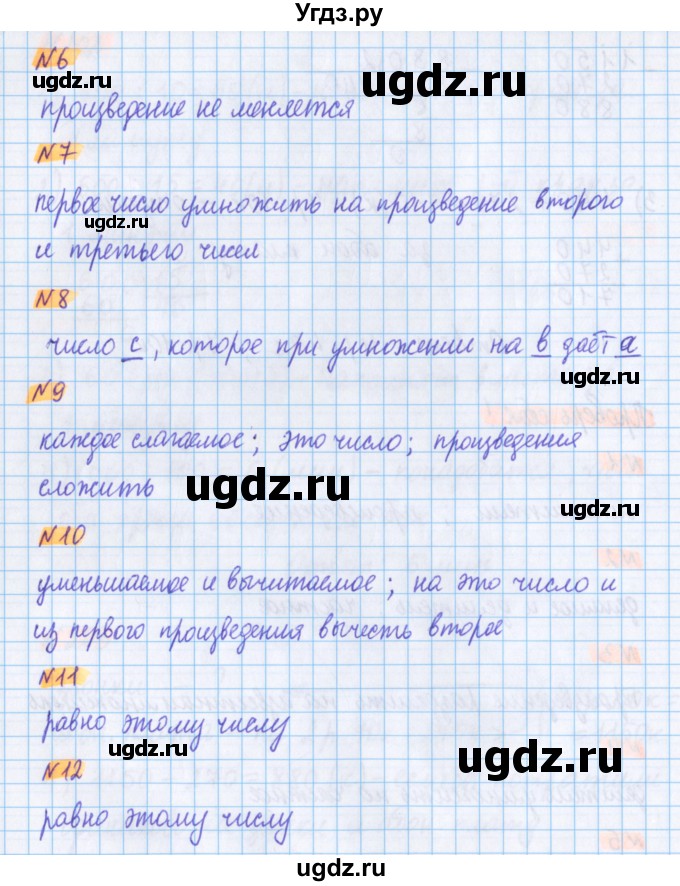 Угдз.ру
N6
ugdz.ru
ugdz.ru
произведение не меняется
N7
первое число умножить на произведение второго
ugdz.ru
и третьего чисел
N8
число с, которое при умножении на в даёт а
ugdz.ru
N9
каждое слагаемое; это число; произведения
сложить
ugdz.ru
ugdz.ru
N10
уменьшаемое и вычитаемое; на это число и
из первого произведения вычесть второе
N11
равно этому числу
ugdz.ru
ugdz.ru
N12
равно этому числу
ugdz.ru